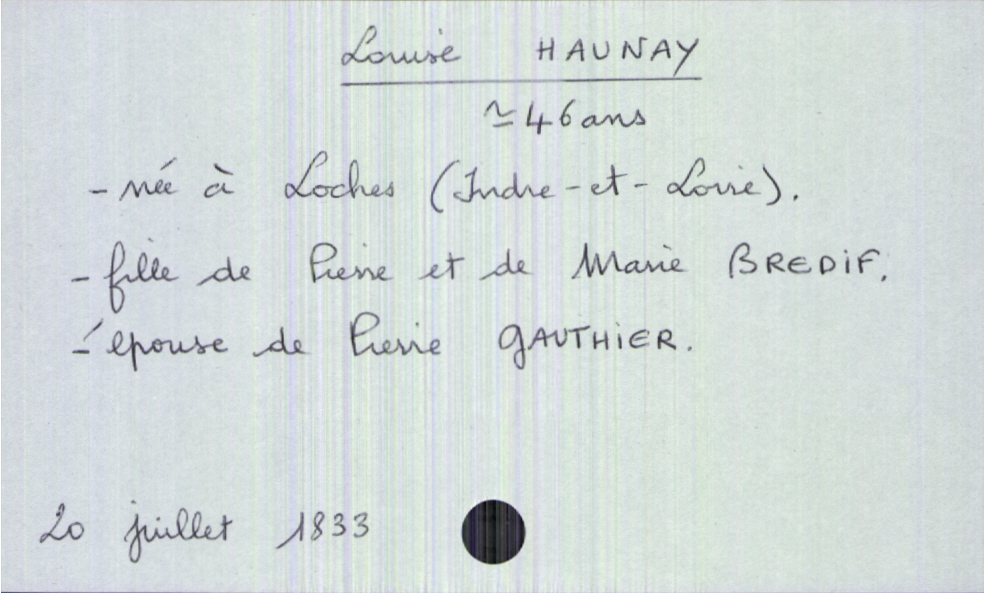 Louise HAUNAY
≃ 46 ans
- née à Loches (Indre-et-Loire).
- fille de Pierre et de Marie BREDIF.
- épouse de Pierre GAUTHIER.
20 juillet 1833